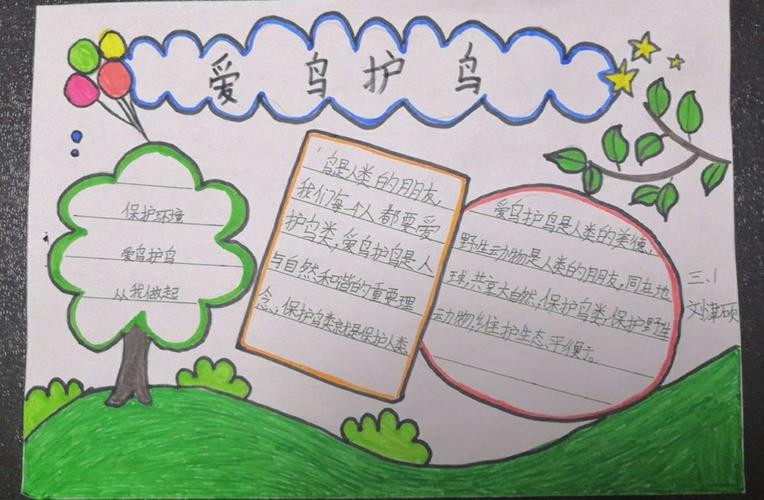 爱鸟护鸟
保护环境
爱鸟护鸟
从我做起
鸟是人类的朋友,
我们每个人都要爱
护鸟类,爱鸟护鸟是人
与自然和谐的重要理
念,保护鸟类就是保护人类
爱鸟护鸟是人类的美德,
野生动物是人类的朋友,同在地
球,共享大自然,保护鸟类,保护野生
动物,维护生态平衡。
三.1
刘津硕